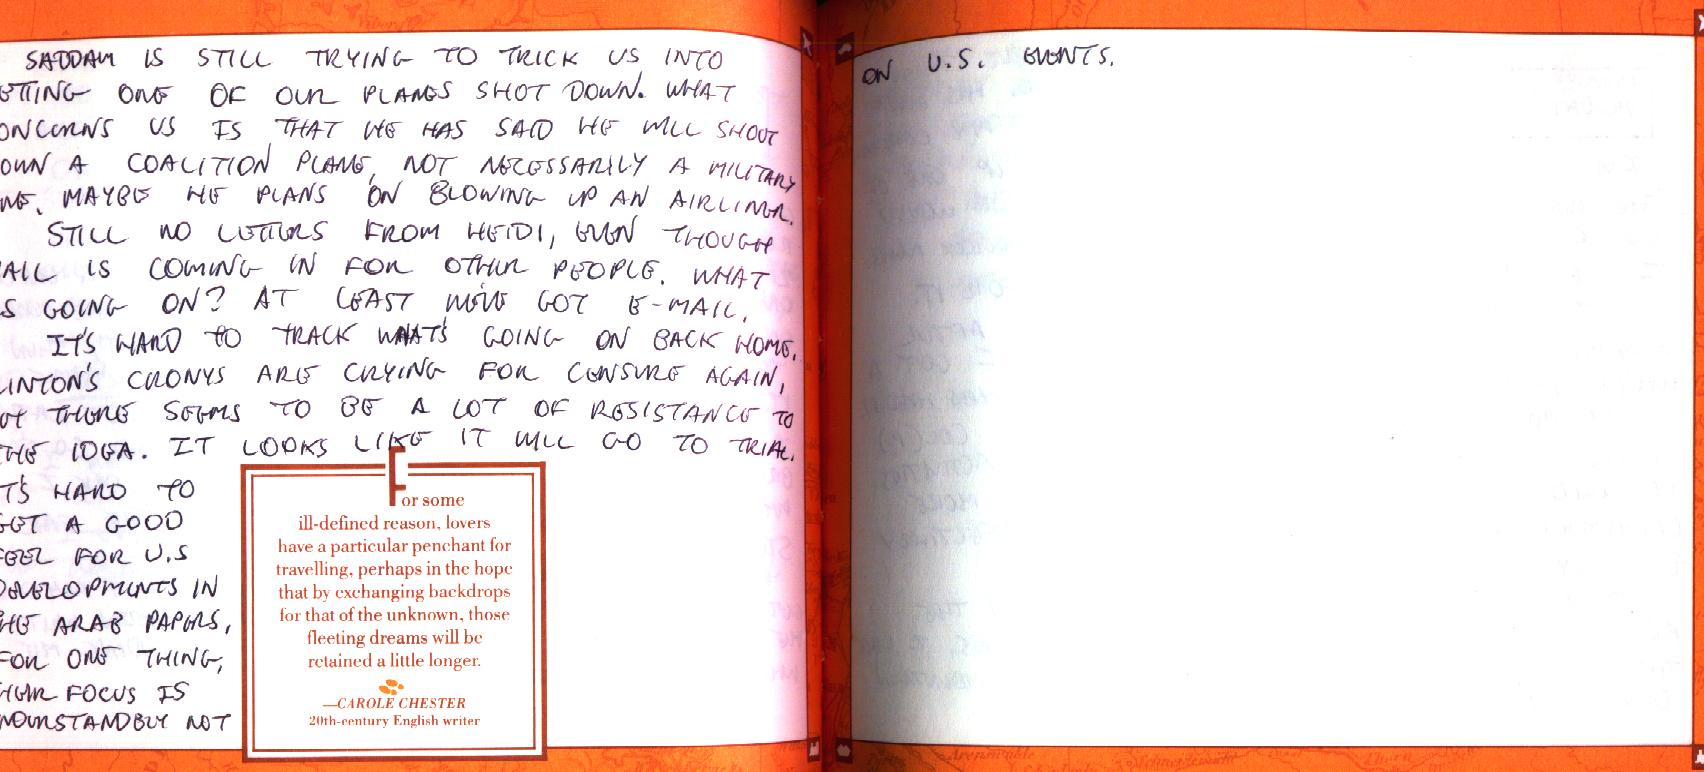 SADDAM IS STILL TRYING TO TRICK US INTO
ETTING ONE OF OUR PLANES SHOT DOWN. WHAT
ONCERNS US IS THAT HE HAS SAID HE WILL SHOOT
OWN A COALITION PLANE, NOT NECESSARILY A MILITARY
NE. MAYBE HE PLANS ON BLOWING UP AN AIRLINER.
STILL NO LETTERS FROM HEIDI, EVEN THOUGH
AIL IS COMING IN FOR OTHER PEOPLE. WHAT
S GOING ON? AT LEAST WE'VE GOT E-MAIL.
IT'S HARD TO TRACK WHAT'S GOING ON BACK HOME.
LINTON'S CRONYS ARE CRYING FOR CENSURE AGAIN,
UT THERE SEEMS TO BE A LOT OF RESISTANCE TO
THE IDEA. IT LOOKS LIKE IT WILL GO TO TRIAL.
IT'S HARD TO
GET A GOOD
FEEL FOR U.S
DEVELOPMENTS IN
HE ARAB PAPERS,
FOR ONE THING,
HEIR FOCUS IS
NDERSTANDBLY NOT
For some
ill-defined reason, lovers
have a particular penchant for
travelling, perhaps in the hope
that by exchanging backdrops
for that of the unknown, those
fleeting dreams will be
retained a little longer.
—CAROLE CHESTER
20th-century English writer
ON U.S. EVENTS.